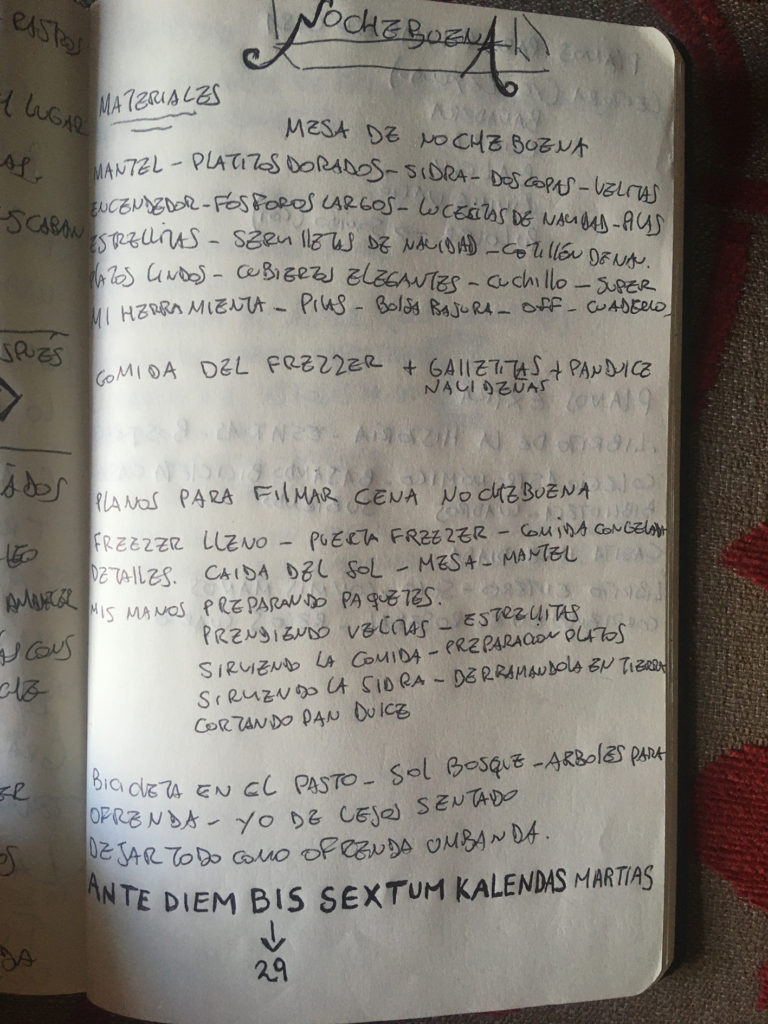 NOCHEBUENA
MATERIALES
MESA DE NOCHEBUENA
MANTEL - PLATITOS DORADOS - SIDRA - DOS COPAS - VELITAS
ENCENDEDOR - FÓSFOROS LARGOS - LUCECITAS DE NAVIDAD - PILAS
ESTRELLITAS - SERVILLETAS DE NAVIDAD - COTILLÓN DE NAV.
PLATOS LINDOS - CUBIERTOS ELEGANTES - CUCHILLO - SUPER
MI HERRAMIENTA - PILAS - BOLSA BASURA - OFF - CUADERNO
COMIDA DEL FREZZER + GALLETITAS + PANDULCE
NAVIDEÑAS
PLANOS PARA FILMAR CENA NOCHEBUENA
FREEZER LLENO - PUERTA FREEZER - COMIDA CONGELADA
DETALLES. CAIDA DEL SOL - MESA - MANTEL
MIS MANOS PREPARANDO PAQUETES.
PRENDIENDO VELITAS - ESTRELLITAS
SIRVIENDO LA COMIDA - PREPARACION PLATOS
SIRVIENDO LA SIDRA - DERRAMANDOLA EN TIERRA
CORTANDO PAN DULCE
BICICLETA EN EL PASTO - SOL BOSQUE - ARBOLES PARA
OFRENDA - YO DE LEJOS SENTADO
DEJAR TODO COMO OFRENDA UMBANDA.
ANTE DIEM BIS SEXTUM KALENDAS MARTIAS
↓
29